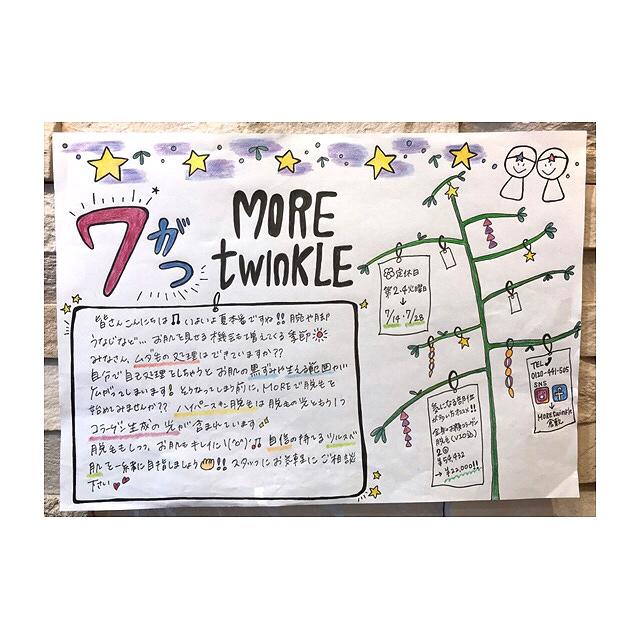 7がつ
MORE
twinkLE
皆さんこんにちは♫いよいよ夏本番ですね!! 腕や脚
うなじなど… お肌を見せる機会も増えてくる季節
みなさん、ムダ毛の処理はできていますか??
自分で自己処理をしちゃうとお肌の黒ずみや生える範囲が
広がってしまいます! そうなってしまう前に、MOREで脱毛を
始めてみませんか?? ハイパースキン脱毛は脱毛の光ともう1つ
コラーゲン生成の光が含まれています
脱毛もしつつ、お肌もキレイに\(^o^)/♫ 自信の持てるツルスベ
肌を一緒に目指しましょう!! スタッフにお気軽にご相談
下さい
定休日
第2・4火曜日
↓
7/14・7/28
気になる部位
全身
脱毛(VIO込)
2回
¥54,432
→ ¥22,000!!
TEL
0120-441-505
SNS
↓
MOREtwinkle
倉敷